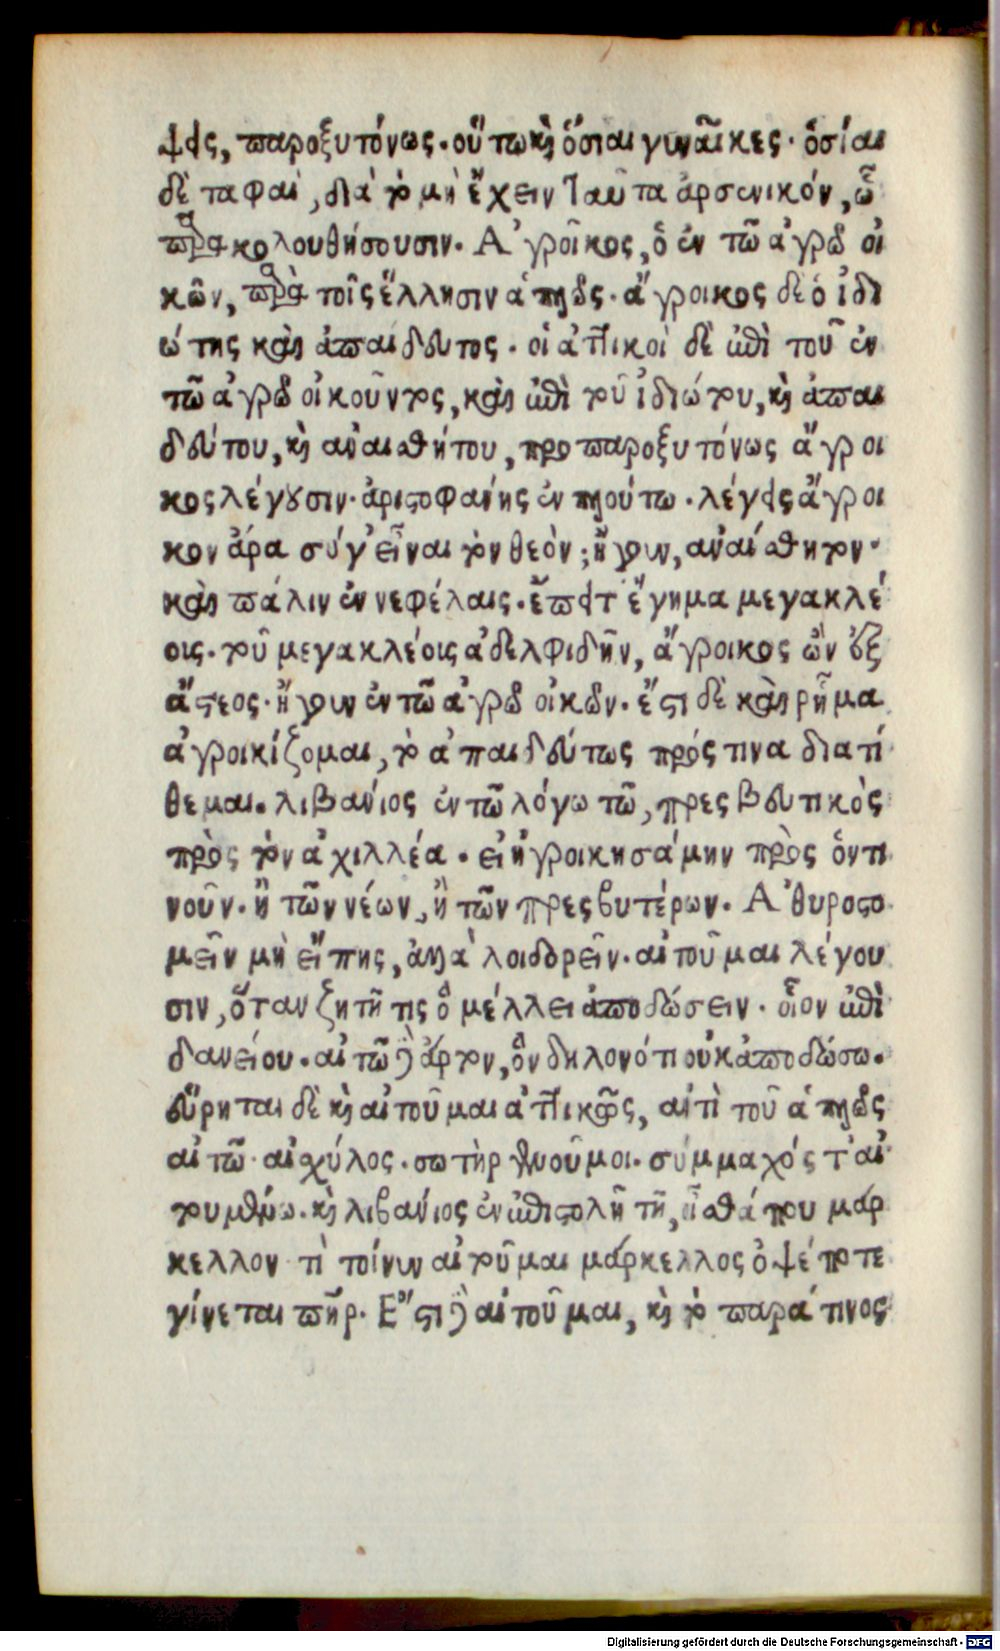 ψεις, παροξυτόνως. οὕτω καὶ ὅσιαι γυναῖκες· ὁσίαι
δὲ ταφαὶ, διὰ τὸ μὴ ἔχειν ταῦτα ἀρσενικόν, ᾧ
παρακολουθήσουσιν. Ἀγροῖκος, ὁ ἐν τῷ ἀγρῷ οἰ
κῶν, παρὰ τοῖς ἕλλησιν ἁπλῶς. ἄγροικος δὲ ὁ ἰδι
ώτης καὶ ἀπαίδευτος. οἱ ἀττικοὶ δὲ ἐπὶ τοῦ ἐν
τῷ ἀγρῷ οἰκοῦντος, καὶ ἐπὶ τοῦ ἰδιώτου, καὶ ἀπαι
δεύτου, καὶ ἀναισθήτου, προπαροξυτόνως ἄγροι
κος λέγουσιν. ἀριστοφάνης ἐν πλούτω. λέγεις ἄγροι
κον ἄρα σύγ' εἶναι τὸν θεόν; ἤγουν, ἀναίσθητον·
καὶ πάλιν ἐν νεφέλαις. ἔπειτ' ἔγημα μεγακλέ
οις. τοῦ μεγακλέοις ἀδελφιδῆν, ἄγροικος ὢν ἐξ
ἄστεος. ἤγουν ἐν τῷ ἀγρῷ οἰκῶν. ἔστι δὲ καὶ ῥῆμα
ἀγροικίζομαι, τὸ ἀπαιδεύτως πρός τινα διατί
θεμαι. λιβάνιος ἐν τῷ λόγω τῷ, πρεσβευτικὸς
πρὸς τὸν ἀχιλλέα. εἰ ἠγροικησάμην πρὸς ὁντι
νοῦν. ἢ τῶν νέων, ἢ τῶν πρεσβυτέρων. Ἀθυροστο
μεῖν μὴ εἴπης, ἀλλὰ λοιδορεῖν. αἰτοῦμαι λέγου
σιν, ὅταν ζητῆ τις ὃ μέλλει ἀποδώσειν. οἷον ἐπὶ
δανείου. αἰτῶ δὲ ἄρτον, ὃν δηλονότι οὐκ ἀποδώσω.
εὕρηται δὲ καὶ αἰτοῦμαι ἀττικῶς, ἀντὶ τοῦ ἁπλῶς
αἰτῶ. αἰσχύλος. σωτὴρ γενοῦ μοι. σύμμαχός τ' αἰ
τουμένω. καὶ λιβάνιος ἐν ἐπιστολῆ τῆ, εἶθά που μάρ
κελλον τὶ τοίνυν αἰτοῦμαι μάρκελλος ὀψέποτε
γίνεται πατήρ. Ἔστι δὲ αἰτοῦμαι, καὶ τὸ παρά τινος
Digitalisierung gefördert durch die Deutsche Forschungsgemeinschaft · DFG